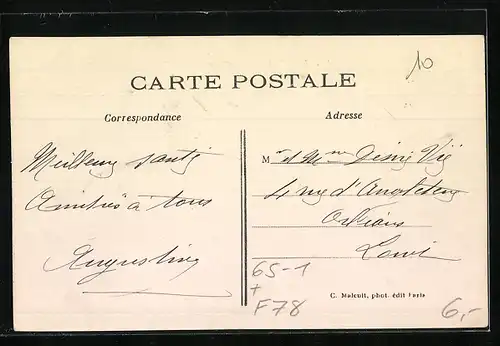 10
CARTE POSTALE
Correspondance
Adresse
Meilleure santé
Amitiés à tous
Augustine
M r et Mme Désiré Vié
4 rue d'Angleterre
Orléans
Loiret
65-1
+
F78
C. Malcuit, phot. édit Paris
6,-